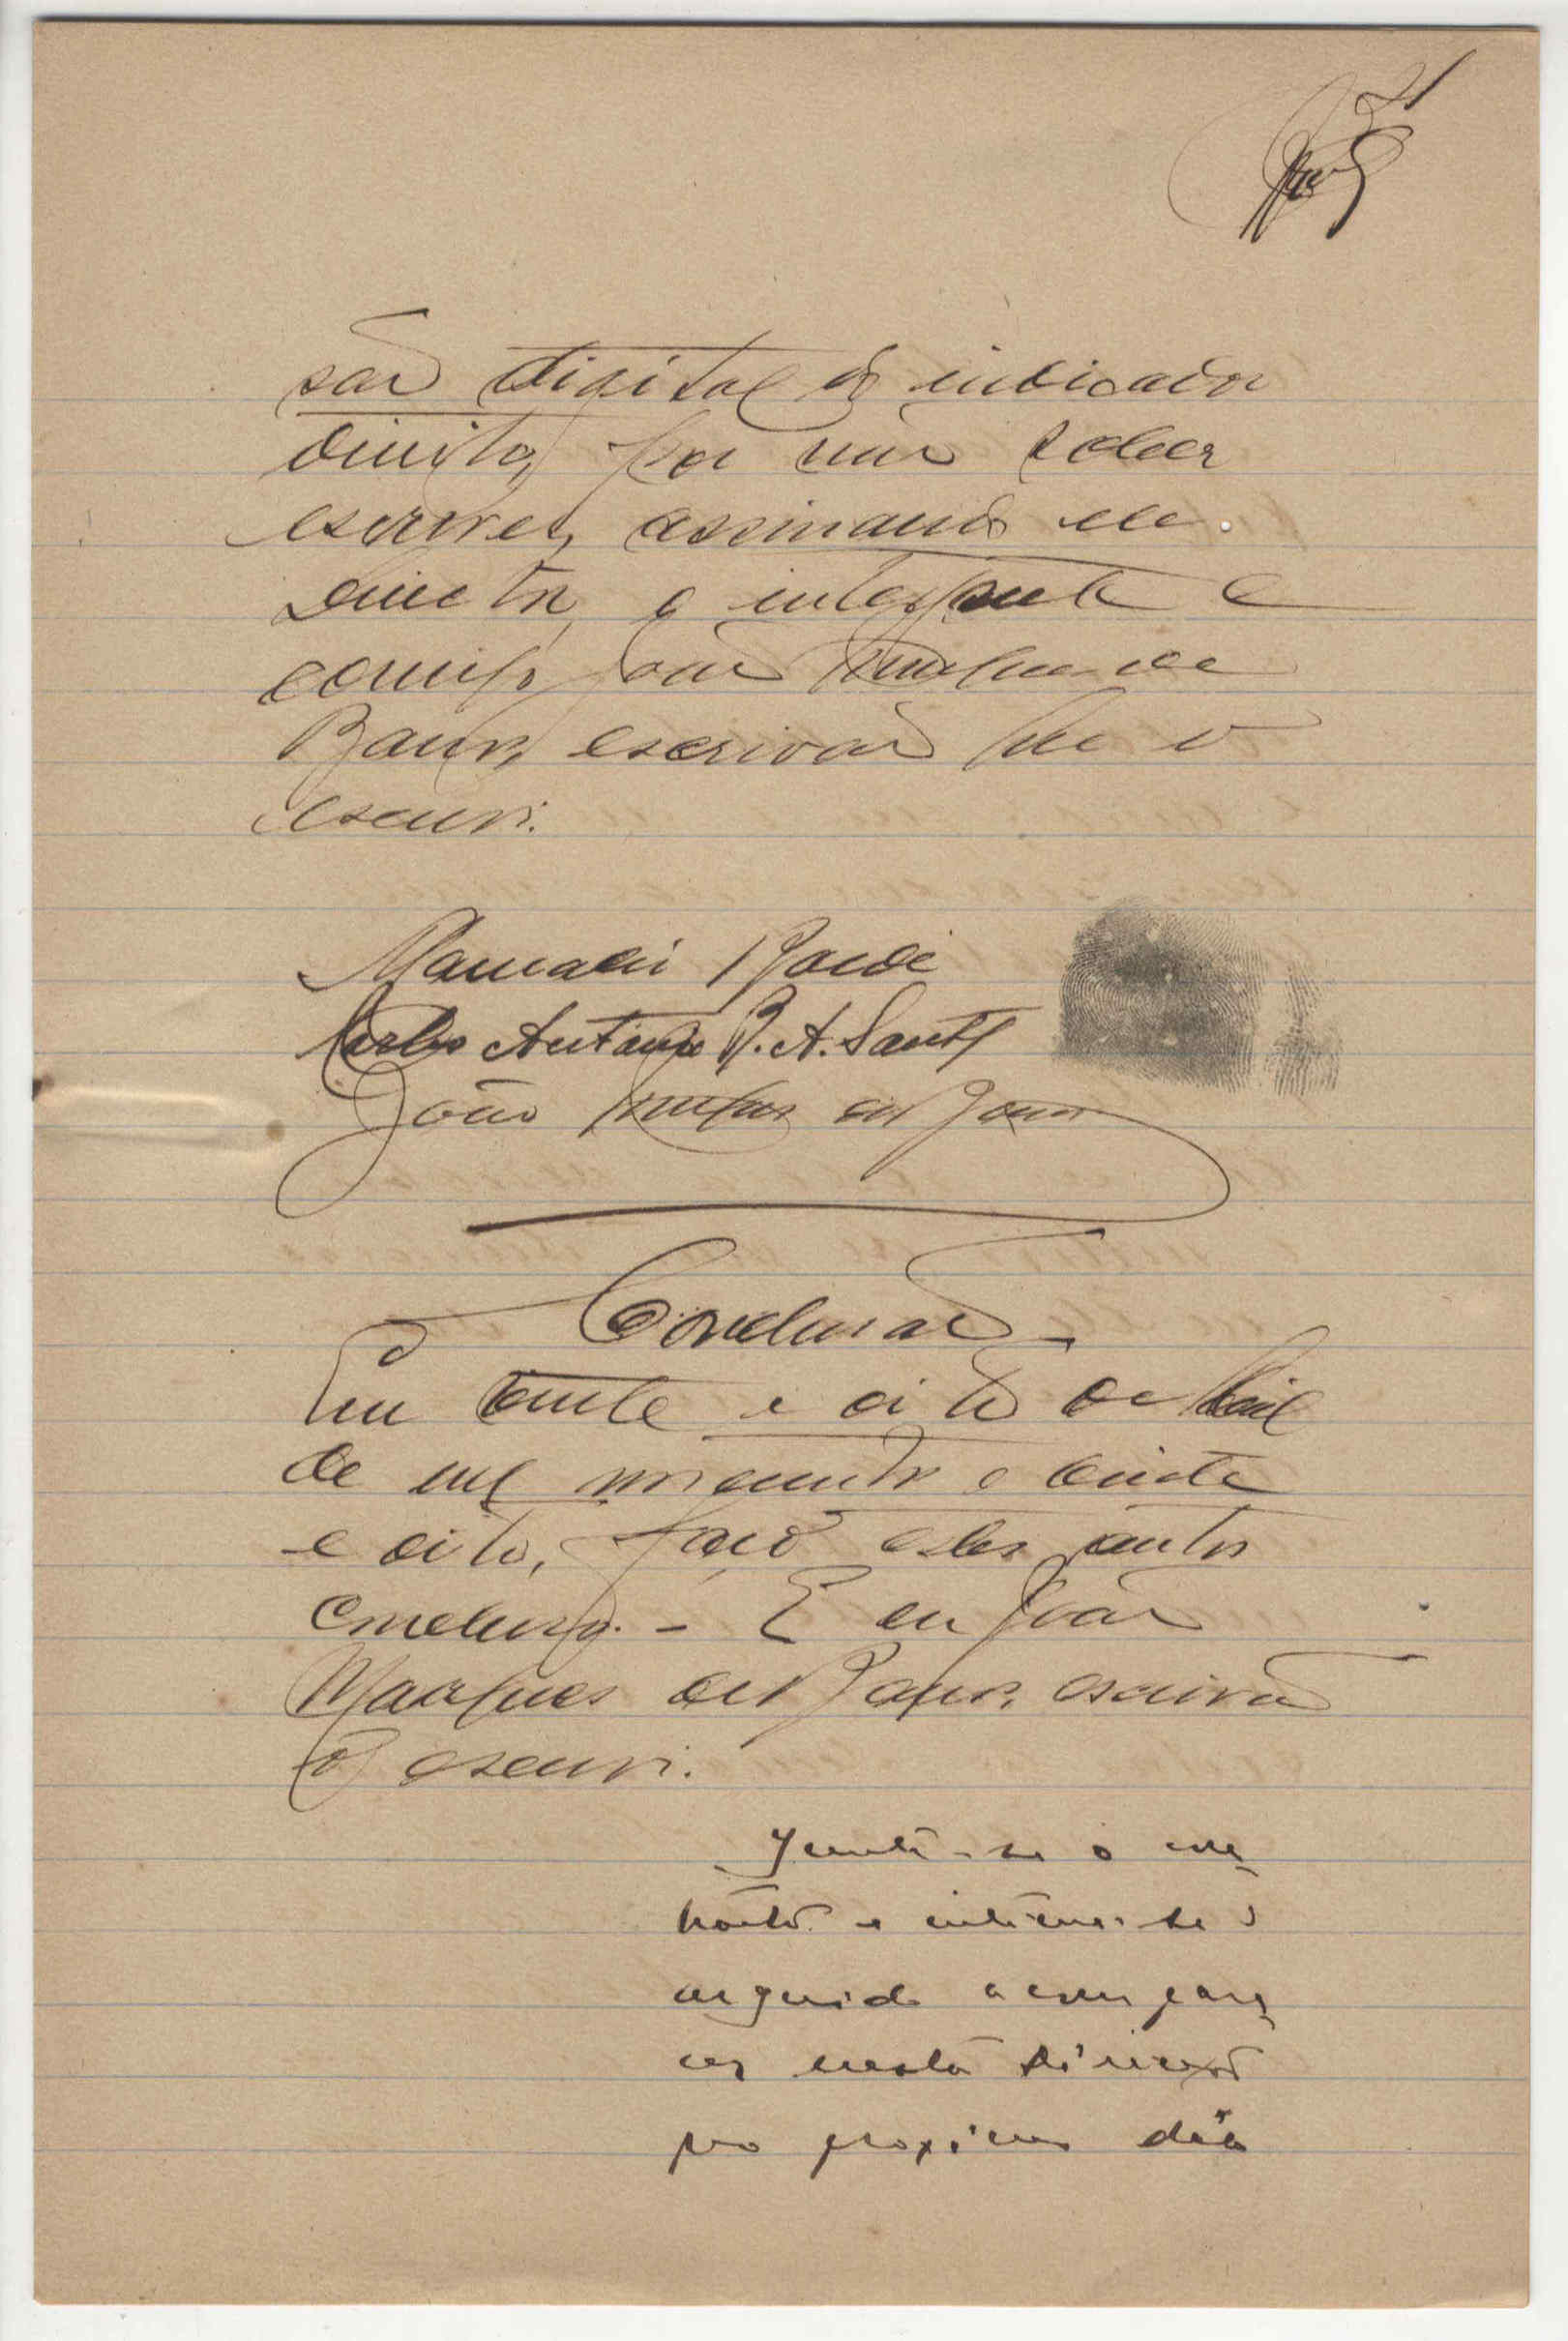 21
são digital do indicador
direito, por não saber
escrever, assinando ele
Director, o interprete e
comigo João Marques de
Barros, escrivão que o
escrevi.
Mamadú Baldé
Carlos Antonio B. A. Santos
João Marques de Barros
Conclusão
Em vinte e oito de Abril
de mil novecentos e vinte
e oito, faço estes autos
conclusos. - E eu João
Marques de Barros, escrivão
o escrevi.
Junte-se o
e intime-se o
arguido a compare
cer nesta
no proximo dia